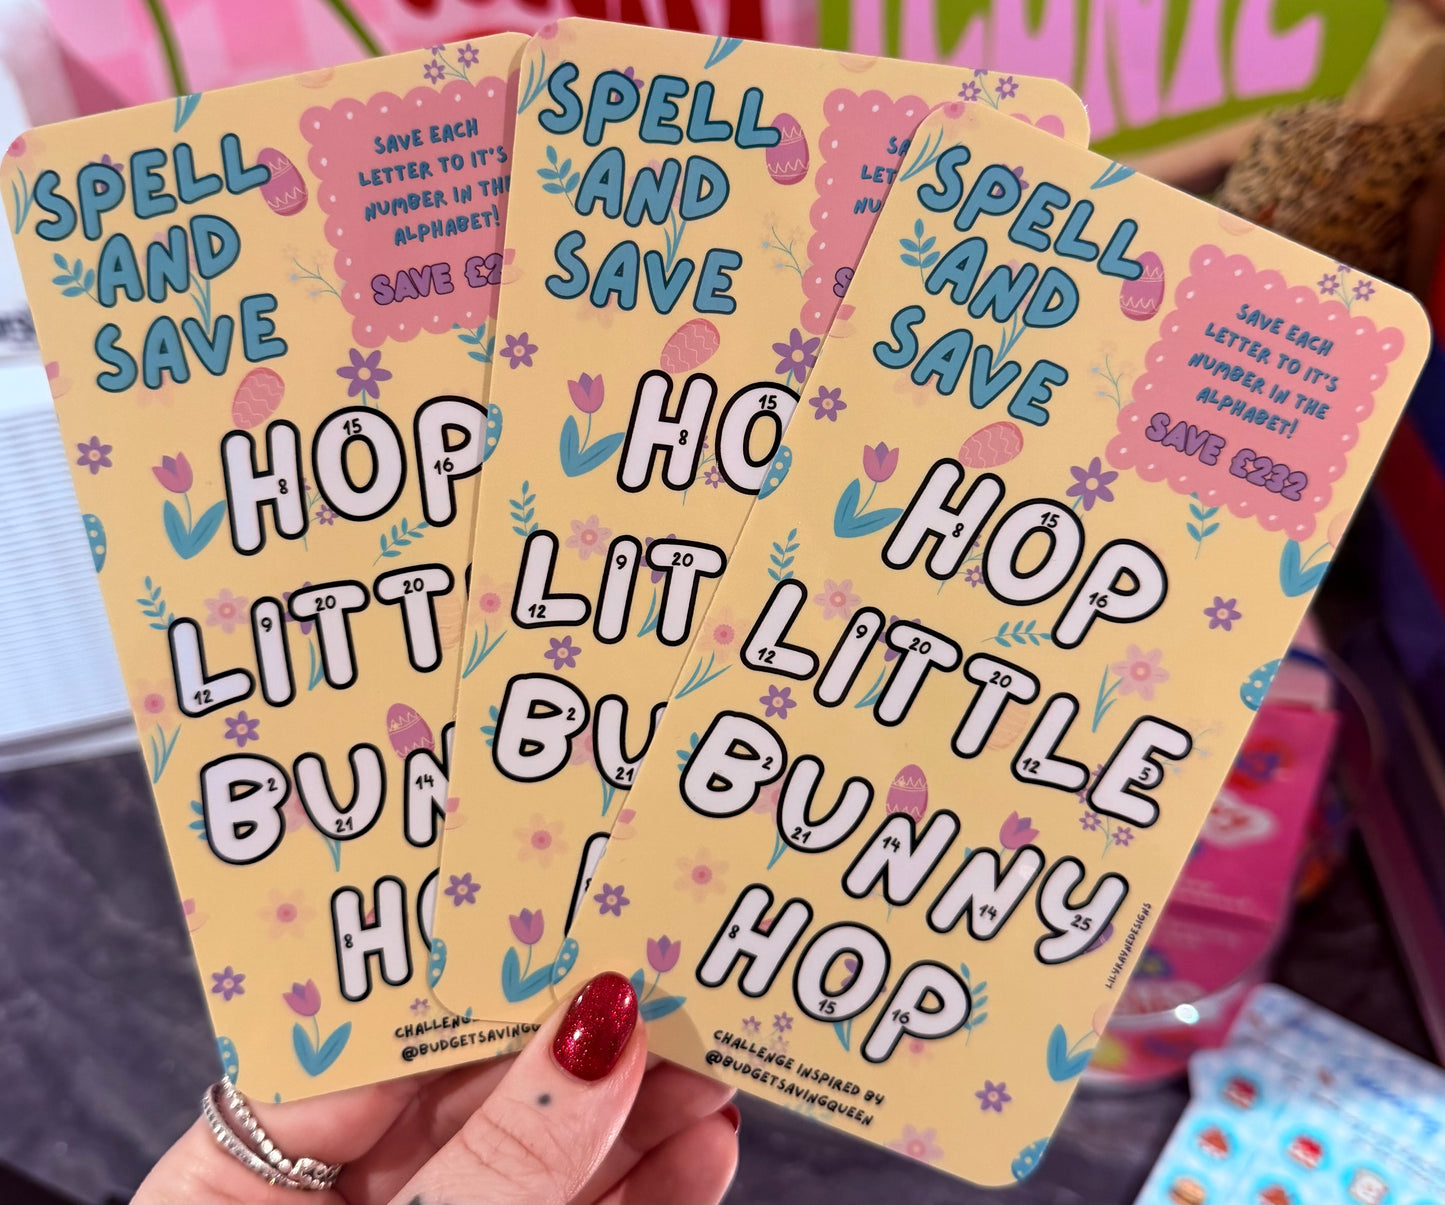 SPELL
AND
SAVE
SAVE EACH
LETTER TO IT'S
NUMBER IN THE
ALPHABET!
SAVE £2
HOP
8 15 16
LITT
12 9 20 20
BUN
2 21 14
H
8
CHALLENG
@BUDGETSAVINGQ
SPELL
AND
SAVE
SA
LET
NU
S
HO
8 15
LIT
12 9 20
BU
2 21
SPELL
AND
SAVE
SAVE EACH
LETTER TO IT'S
NUMBER IN THE
ALPHABET!
SAVE £232
HOP
8 15 16
LITTLE
12 9 20 20 12 5
BUNNY
2 21 14 14 25
HOP
8 15 16
LILYRAYNEDESIGNS
CHALLENGE INSPIRED BY
@BUDGETSAVINGQUEEN